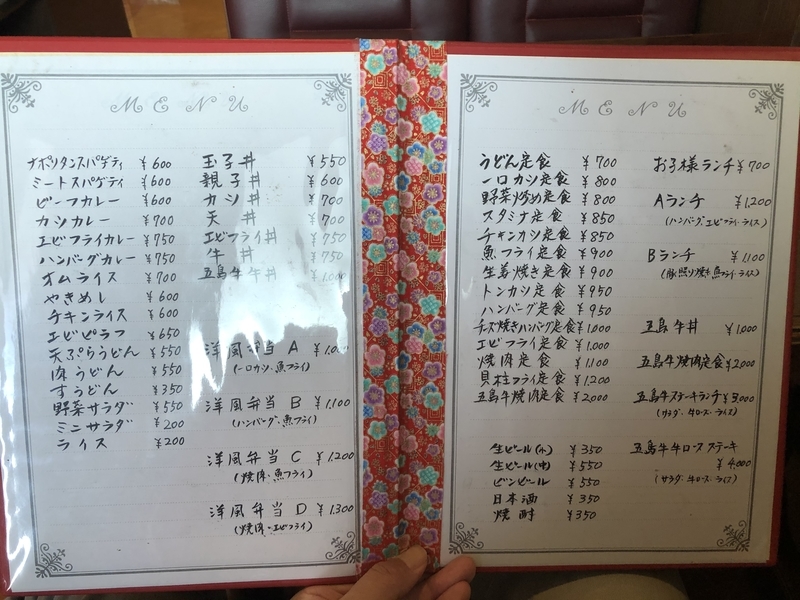 MENU
ナポリタンスパゲティ ¥600
ミートスパゲティ ¥600
ビーフカレー ¥600
カツカレー ¥700
エビフライカレー ¥750
ハンバーグカレー ¥750
オムライス ¥700
やきめし ¥600
チキンライス ¥600
エビピラフ ¥650
天ぷらうどん ¥550
肉うどん ¥550
すうどん ¥350
野菜サラダ ¥550
ミニサラダ ¥200
ライス ¥200
玉子丼 ¥550
親子丼 ¥600
カツ丼 ¥700
天丼 ¥700
エビフライ丼 ¥750
牛丼 ¥750
五島牛牛丼 ¥1.000
洋風弁当 A ¥1.000
(一口カツ・魚フライ)
洋風弁当 B ¥1.100
(ハンバーグ・魚フライ)
洋風弁当 C ¥1.200
(焼肉・魚フライ)
洋風弁当 D ¥1.300
(焼肉・エビフライ)
MENU
うどん定食 ¥700
一口カツ定食 ¥800
野菜炒め定食 ¥800
スタミナ定食 ¥850
チキンカツ定食 ¥850
魚フライ定食 ¥900
生姜焼き定食 ¥900
トンカツ定食 ¥950
ハンバーグ定食 ¥950
チーズ焼きハンバーグ定食 ¥1.000
エビフライ定食 ¥1.000
焼肉定食 ¥1.100
貝柱フライ定食 ¥1.200
五島牛焼肉定食 ¥2.000
生ビール(小) ¥350
生ビール(中) ¥550
ビンビール ¥550
日本酒 ¥350
焼酎 ¥350
お子様ランチ ¥700
Aランチ ¥1.200
(ハンバーグ・エビフライ・ライス)
Bランチ ¥1.100
(豚照り焼き・魚フライ・ライス)
五島牛丼 ¥1.000
五島牛焼肉定食 ¥2.000
五島牛ステーキランチ ¥3.000
(サラダ・牛ロース・ライス)
五島牛牛ロースステーキ
¥4.000
(サラダ・牛ロース・ライス)